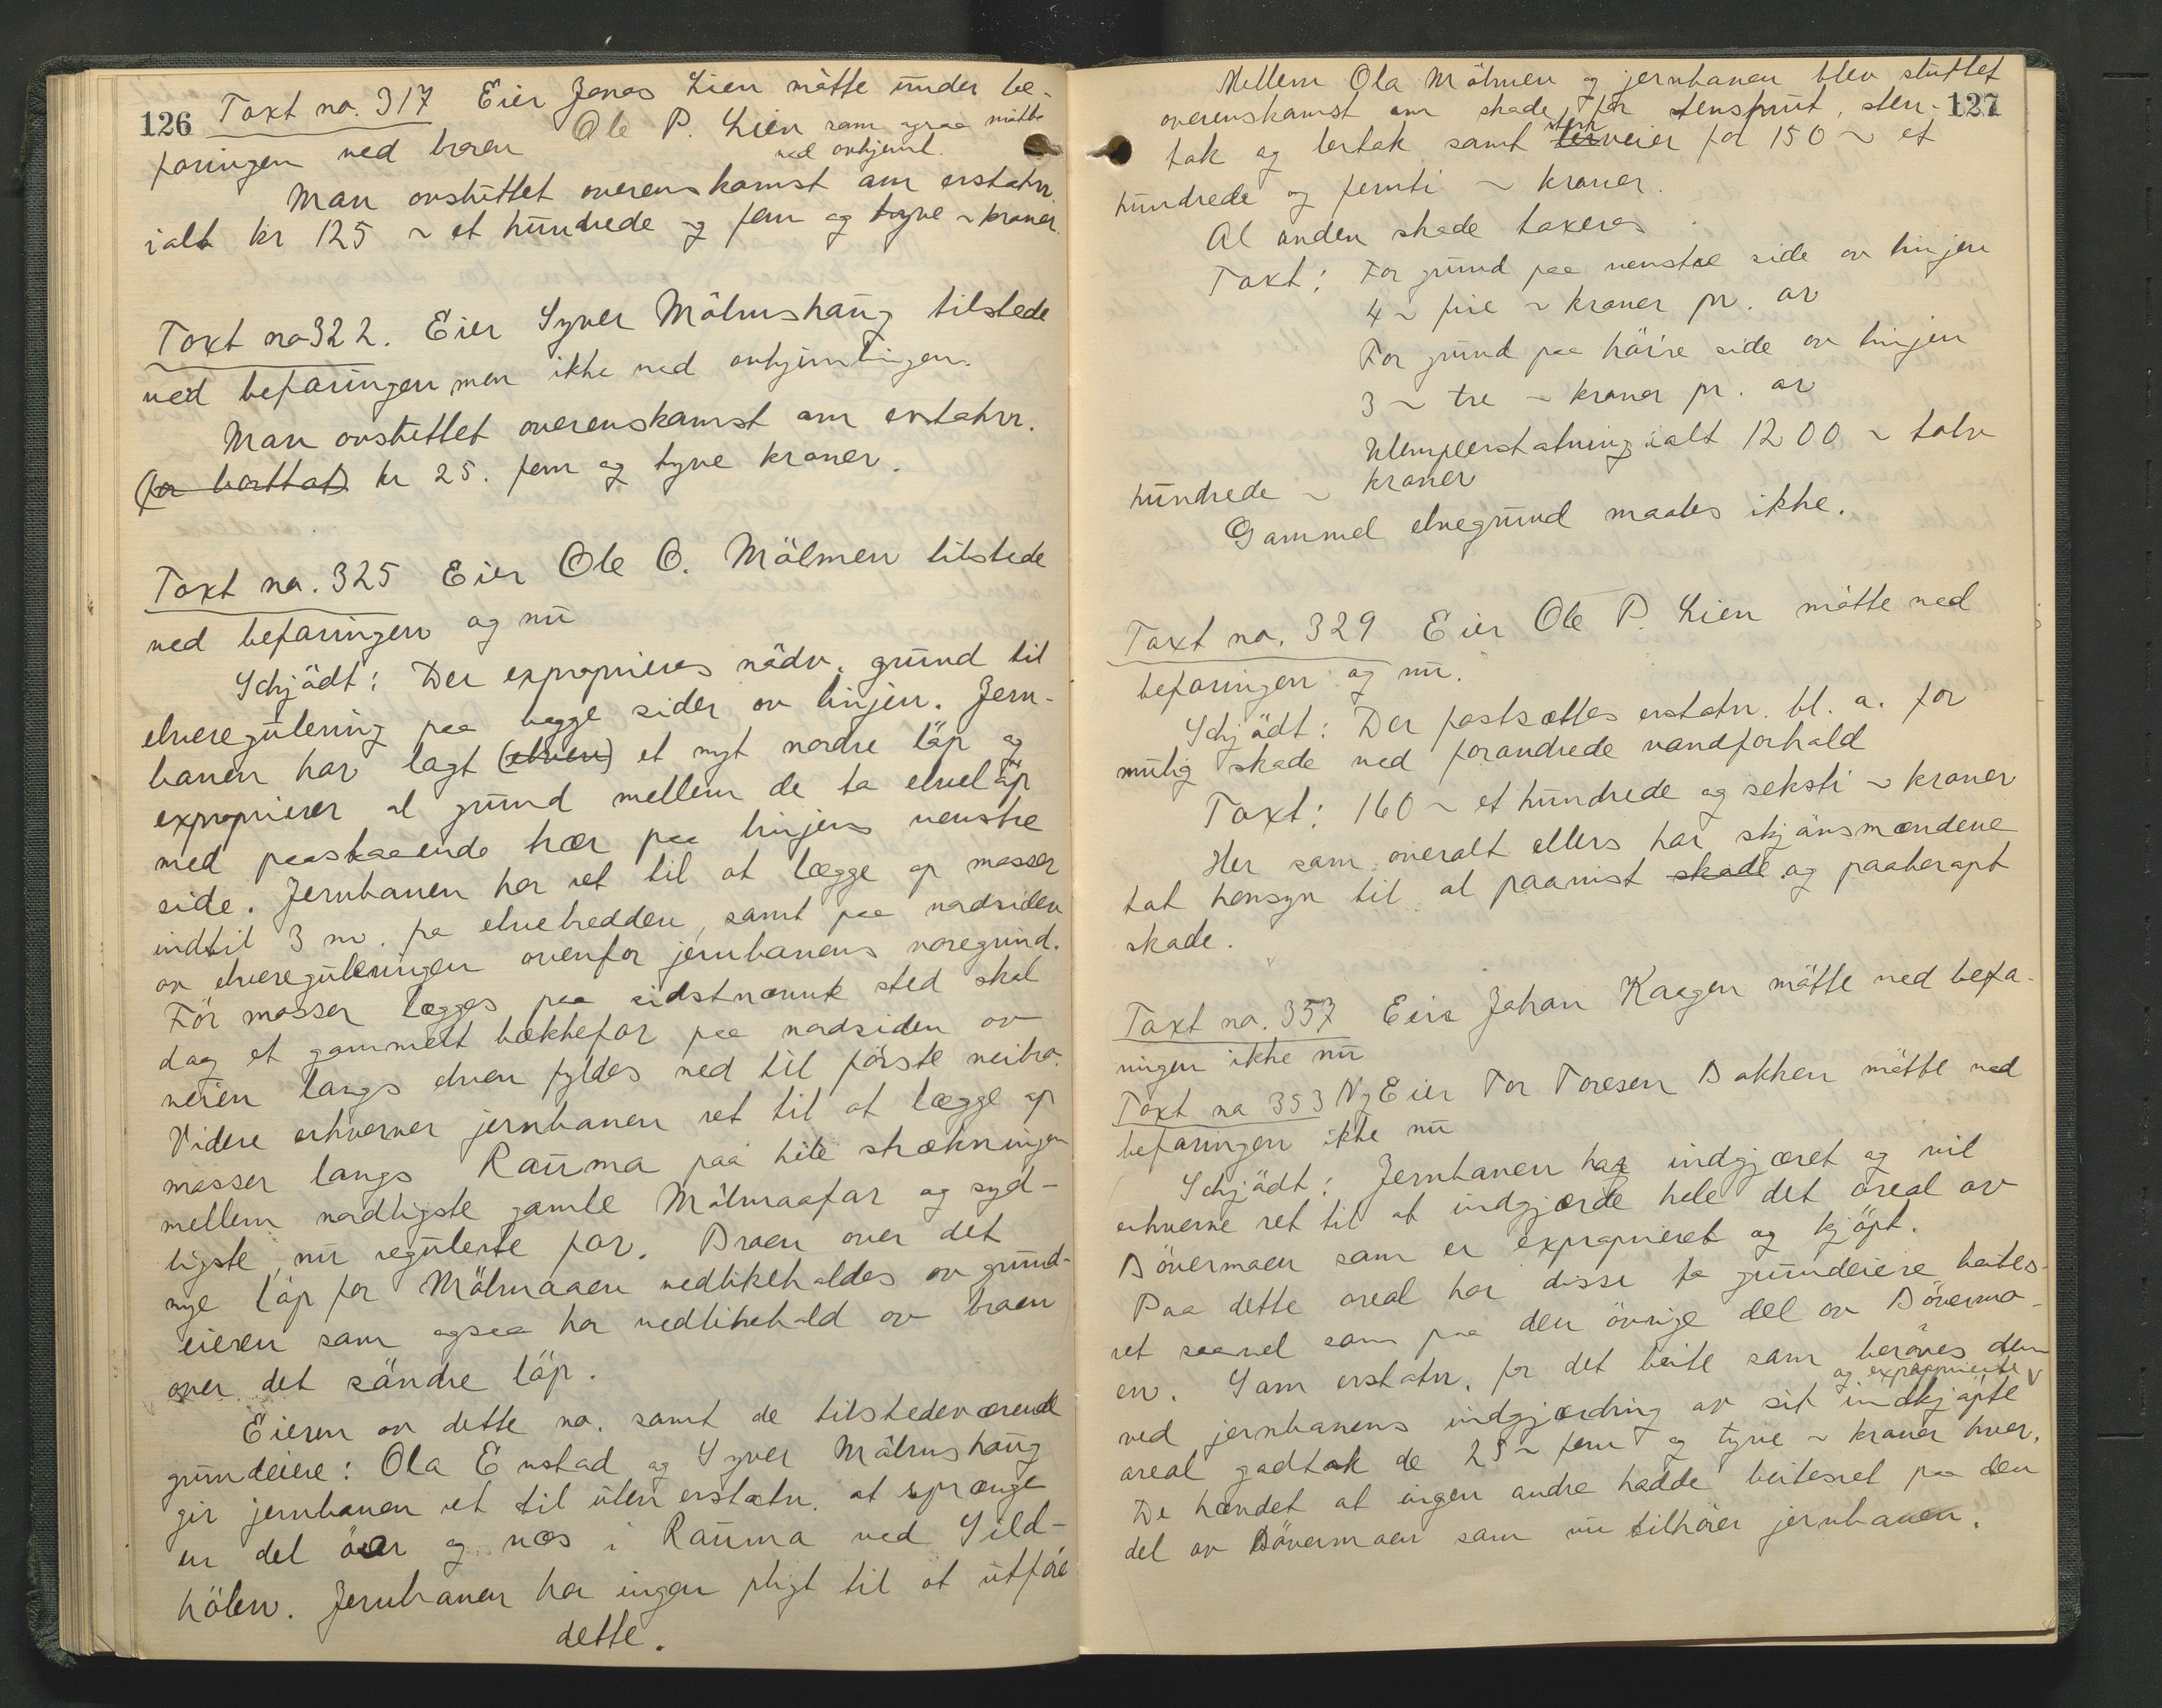 126
Taxt no. 317 Eier Jonas Lien mötte under be-
faringen ved broren Ole P. Lien som ogsaa mötte
ved avhjeml.
Man avsluttet overenskomst om erstatn.
ialt kr 125 ~ et hundrede og fem og tyve ~ kroner.
Taxt no 322. Eier Syver Mölmshaug tilstede
ved befaringen men ikke ved avhjemlingen.
Man avsluttet overenskomst om erstatn.
(for borttat) kr 25. fem og tyve kroner.
Taxt no. 325 Eier Ole O. Mölmen tilstede
ved befaringen og nu
Schjödt: Der exproprieres nödv. grund til
elveregulering paa begge sider av linjen. Jern-
banen har lagt (elven) et nyt nordre löp og
exproprierer al grund mellem de to elvelöp
med paastaaende trær paa linjens venstre
side. Jernbanen har ret til at lægge op masser
indtil 3 m. fra elvebredden, samt paa nordsiden
av elvereguleringen ovenfor jernbanens voregrind.
För masser lægges paa sidstnævnte sted skal
dog et gammelt bækkefar paa nordsiden av
veien langs elven fyldes ned til förste veibro.
Videre erhverver jernbanen ret til at lægge op
masser langs Rauma paa hele strækningen
mellem nordligste gamle Mölmaafar og syd-
ligste, nu regulerte far. Broen over det
nye löp for Mölmaaen vedlikeholdes av grund-
eieren som ogsaa har vedlikehold av broen
over det söndre löp.
Eieren av dette no. samt de tilstedeværende
grundeiere: Ola Enstad og Syver Mölmshaug
gir jernbanen ret til uten erstatn. at sprænge
en del öar og næs i Rauma ved Sild-
hölen. Jernbanen har ingen pligt til at utföre
dette.
127
Mellem Ola Mölmen og jernbanen blev sluttet
overenskomst om skade for stensprut, sten-
tak og lertak samt lerveier for 150 ~ et
sten
hundrede og femti ~ kroner.
Al anden skade taxeres.
Taxt: For grund paa venstre side av linjen
4 ~ fire ~ kroner pr. ar
For grund paa höire side av linjen
3 ~ tre ~ kroner pr. ar
Ulempeerstatning ialt 1200 ~ tolv
hundrede ~ kroner
Gammel elvegrund maales ikke.
Taxt no. 329 Eier Ole P. Lien mötte ved
befaringen og nu.
Schjödt: Der fastsættes erstatn. bl. a. for
mulig skade ved forandrede vandforhold
Taxt: 160 ~ et hundrede og seksti ~ kroner
Her som overalt ellers har skjönsmændene
tat hensyn til al paavist skade og paaberopt
skade.
Taxt no. 357 Eier Johan Kaagen mötte ved befa-
ringen ikke nu
Taxt no 353 Ny Eier Tor Toresen Bakken mötte ved
befaringen ikke nu
Schjödt: Jernbanen har indgjæret og vil
erhverve ret til at indgjærde hele det areal av
Bövermoen som er expropriert og kjöpt.
Paa dette areal har disse to grundeiere beites-
ret saavel som paa den övrige del av Bövermo-
en. Som erstatn. for det beite som beröves dem
og exproprierte
ved jernbanens indgjærdning av sit indkjöpte
areal godtok de 25 ~ fem og tyve ~ kroner hver.
De hændet at ingen andre hadde beitesret paa den
del av Bövermoen som nu tilhörer jernbanen.